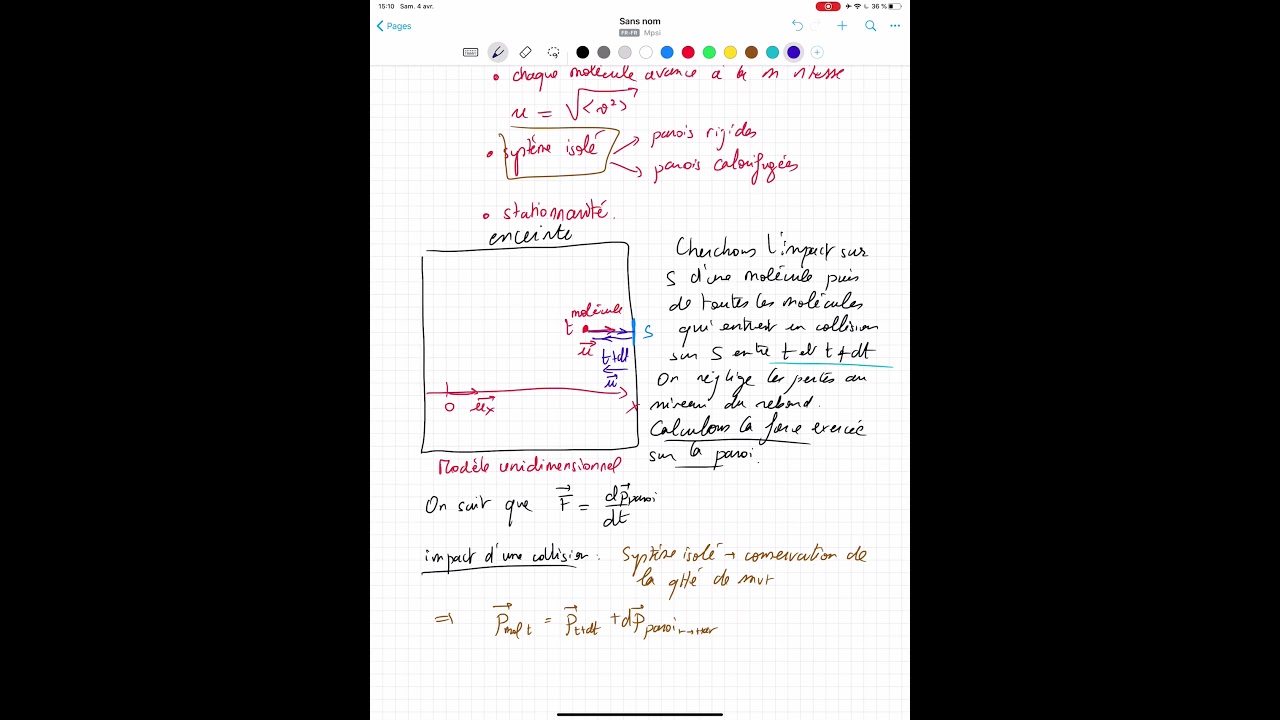 15:10 Sam. 4 avr.
36 %
Pages
Sans nom
FR-FR Mpsi
• chaque molécule avance à la m vitesse
u = √<v²>
• Système isolé
parois rigides
parois calorifugées
• stationnarité.
enceinte
molécule
t
S
u
t+dt
u
O
ux
x
Modèle unidimensionnel
Cherchons l'impact sur
S d'une molécule puis
de toutes les molécules
qui entrent en collision
sur S entre t et t+dt
On néglige les pertes au
niveau du rebond.
Calculons la force exercée
sur la paroi.
On sait que F = dp paroi / dt
impact d'une collision : Système isolé → conservation de
la qtté de mvt
⇒ P mol t = P t+dt + dP paroi